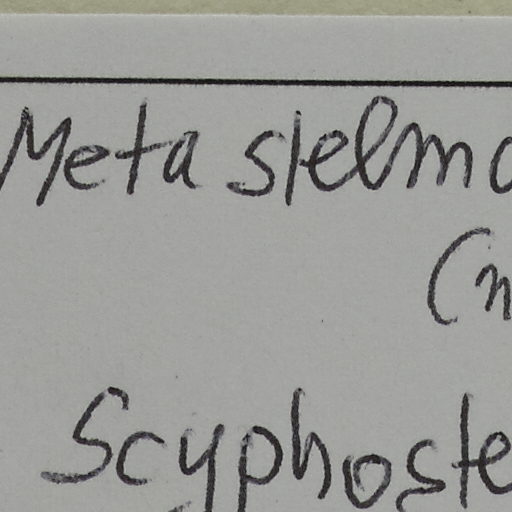 Meta stelma
(n
Scyphoste